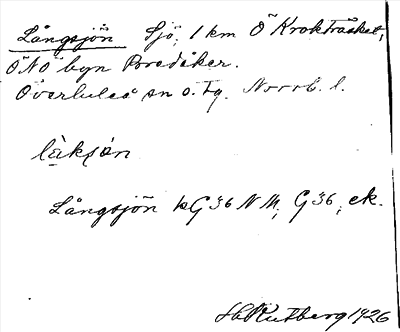 Långsjön Sjö, 1 km Ö Krokträsket,
ÖNÖ byn Bredåker.
Överluleå sn o. tg. Norrb. l.
Långsjön kG36 NM; G36, ek.
H Rutberg 1926